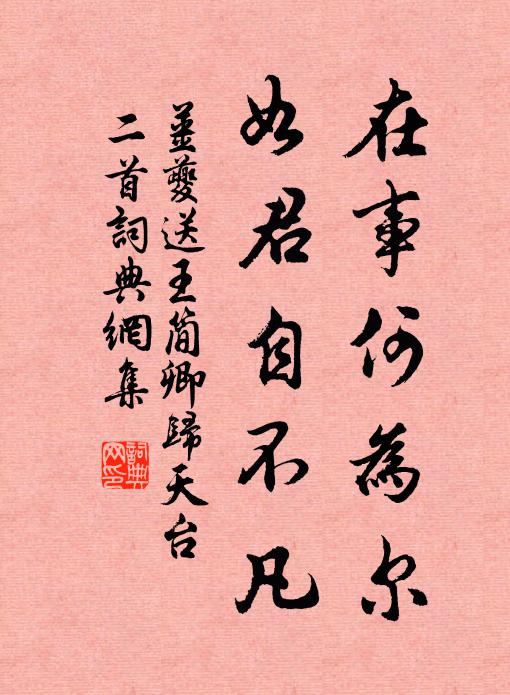 在事何為尔
如君自不凡
姜夔送王簡卿歸天台
二首詞典網集
詞典
网印